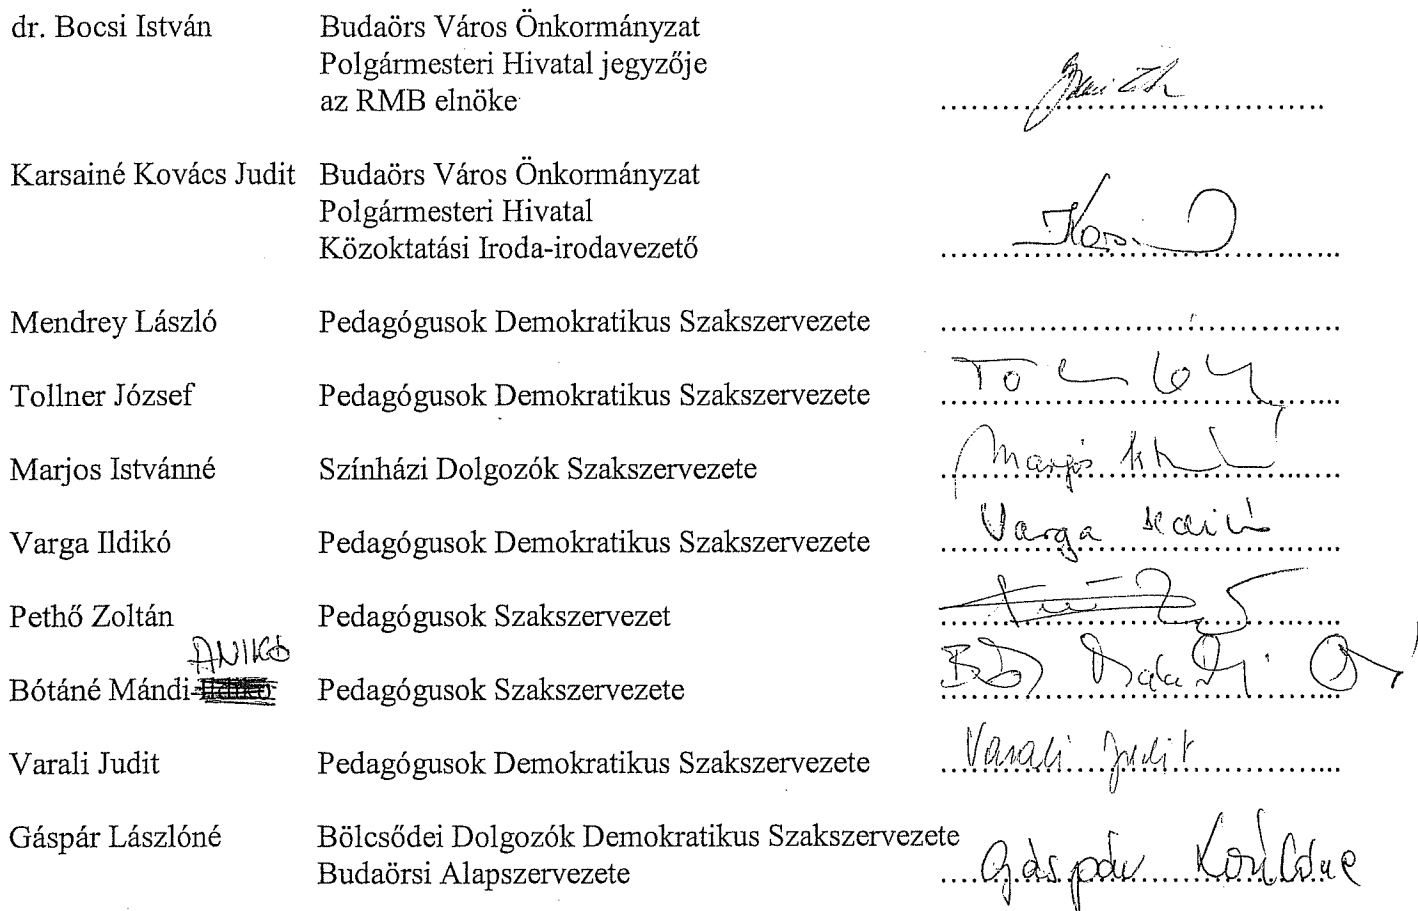 dr. Bocsi István Budaörs Város Önkormányzat
Polgármesteri Hivatal jegyzője
az RMB elnöke
Karsainé Kovács Judit Budaörs Város Önkormányzat
Polgármesteri Hivatal
Közoktatási Iroda-irodavezető
Mendrey László Pedagógusok Demokratikus Szakszervezete
Tollner József Pedagógusok Demokratikus Szakszervezete
Marjos Istvánné Színházi Dolgozók Szakszervezete
Varga Ildikó Pedagógusok Demokratikus Szakszervezete Varga
Pethő Zoltán Pedagógusok Szakszervezet
ANIKÓ
Bótáné Mándi Pedagógusok Szakszervezete
Varali Judit Pedagógusok Demokratikus Szakszervezete Varali Judit
Gáspár Lászlóné Bölcsődei Dolgozók Demokratikus Szakszervezete
Budaörsi Alapszervezete Gáspár